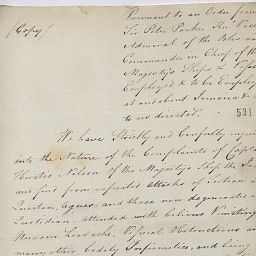 (Copy)
Pursuant to an Order from
Sir Peter Parker Knt. Vice
Admiral of the
Commander in Chief of His
Majestys Ships & Vessels
Employed & to be Employed
at and about Jamaica &
to us directed.
531
We have Strictly and Carefully
into the Nature of the Complaints of Capt
Horatio Nelson of His Majestys Ship the
and find from repeated attacks of
Quartan, Agues, and those now degenerated
Quotidian, attended with bilious Vomiting
Nervous Headachs, Visceral Obstructions and
many other bodily Infirmities, and being